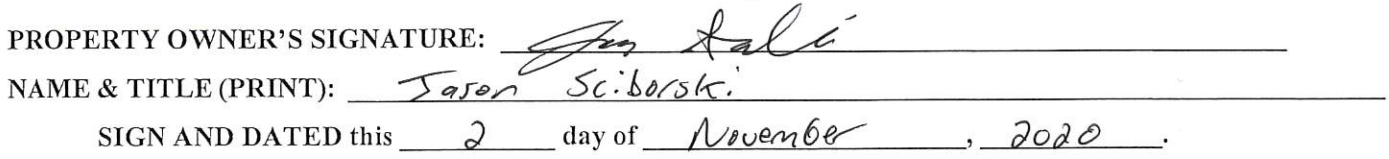 PROPERTY OWNER'S SIGNATURE:
NAME & TITLE (PRINT): Jason Sciborski
SIGN AND DATED this 2 day of November, 2020.